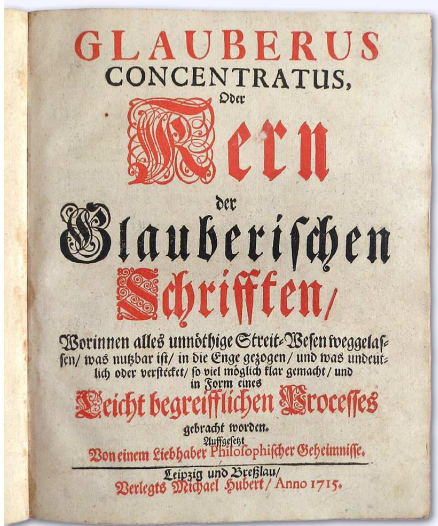 GLAUBERUS
CONCENTRATUS,
Oder
Kern
der
Glauberischen
Schrifften/
Worinnen alles unnöthige Streit-Wesen weggelas-
sen/ was nutzbar ist/ in die Enge gezogen/ und was undeut-
lich oder verstecket/ so viel möglich klar gemacht/ und
in Form eines
Leicht begreifflichen Processes
gebracht worden.
Auffgesetzt
Von einem Liebhaber Philosophischer Geheimnisse.
Leipzig und Breßlau/
Verlegts Michael Hubert/ Anno 1715.